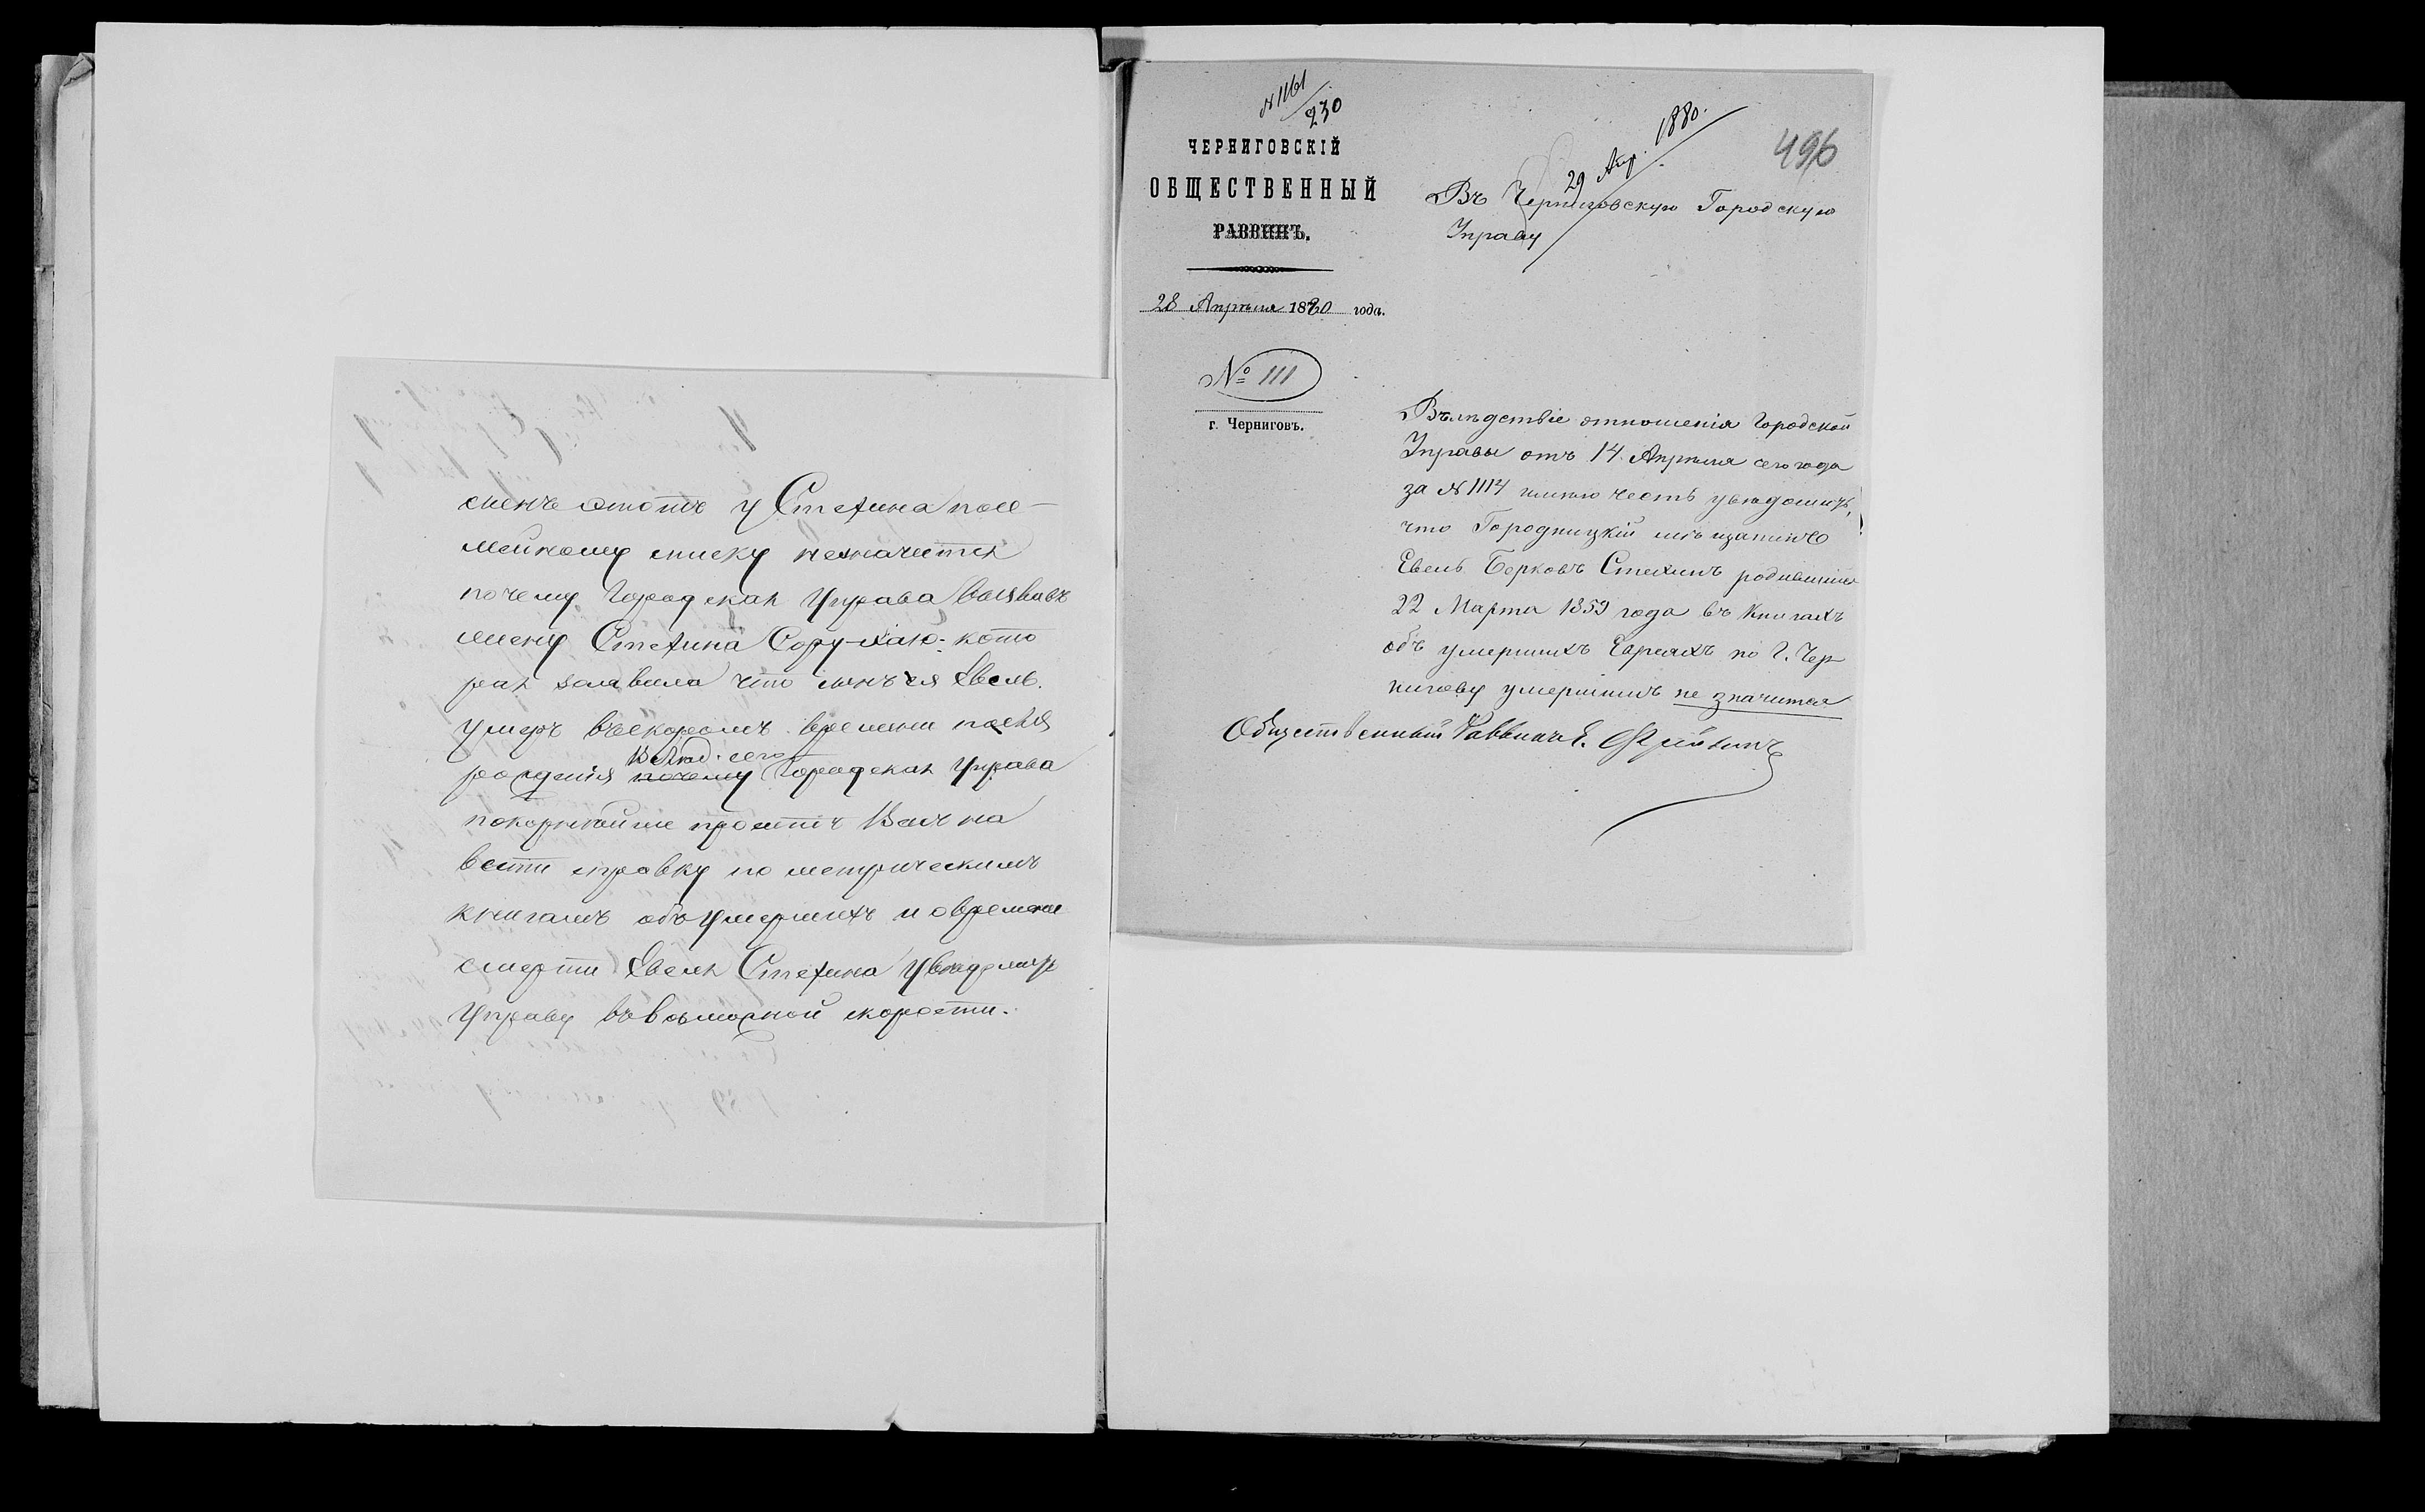 сменъ этотъ у Стехина посе-
мейному списку незначится
почему Городская Управа вызвавъ
жену Стехина Сору-Хаю: кото
рая заявила что сынъ ея Евель.
умеръ въскоромъ времени после
Вслед. сего
рождения почему Городская Управа
покорнейше проситъ Васъ на
вести справку по метрическимъ
книгамъ объ умершихъ и овремени
смерти Евеля Стехина уведомить
Управу въ возможной скорости.
N 1161
230
ЧЕРНИГОВСКІЙ
ОБЩЕСТВЕННЫЙ
РАВВИНЪ.
28 Апреля 1880 года.
№ 111
г. Черниговъ.
29 Апр. 1880.
496
Въ Черниговскую Городскую
Управу
Вслѣдствіе отношенія Городской
Управы отъ 14 Апрѣля сего года
за N 1114 имѣю честь увѣдомить,
что Городницкій мѣщанинъ
Евель Берковъ Стехинъ родившійся
22 Марта 1859 года въ Книгахъ
объ умершихъ Евреяхъ по г. Чер
нигову умершимъ не значится
Общественный Раввинъ